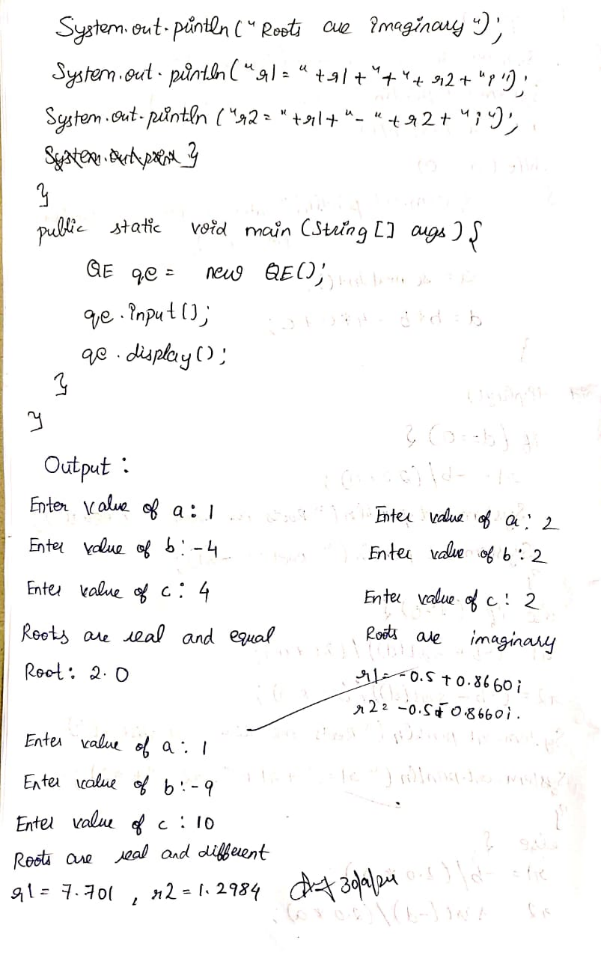 System.out.println("Roots are imaginary");
System.out.println("r1 = " + r1 + "+" + r2 + "i");
System.out.println("r2 = " + r1 + "-" + r2 + "i");
}
}
public static void main (String [] args) {
QE qe = new QE();
qe.input();
qe.display();
}
}
Output :
Enter value of a : 1
Enter value of b : -4
Enter value of c : 4
Roots are real and equal
Root : 2.0
Enter value of a : 2
Enter value of b : 2
Enter value of c : 2
Roots are imaginary
r1 = -0.5 + 0.8660i
r2 = -0.5 - 0.8660i.
Enter value of a : 1
Enter value of b : -9
Enter value of c : 10
Roots are real and different
r1 = 7.701 , r2 = 1.2984
30/9/24